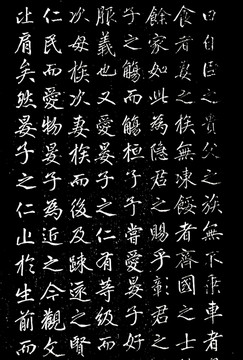 曰自臣之貴父之族無不乘車者
食者妻之族無凍餒者齊國之士
餘家如此為隱君之賜乎彰君之
子之觴而觴桓子予嘗愛晏子好
服義也又愛晏子之仁有等級而
次母族次妻族而後及疎遠之賢
仁民而愛物晏子為近之今觀文
比肩矣然晏子之仁止於生前而